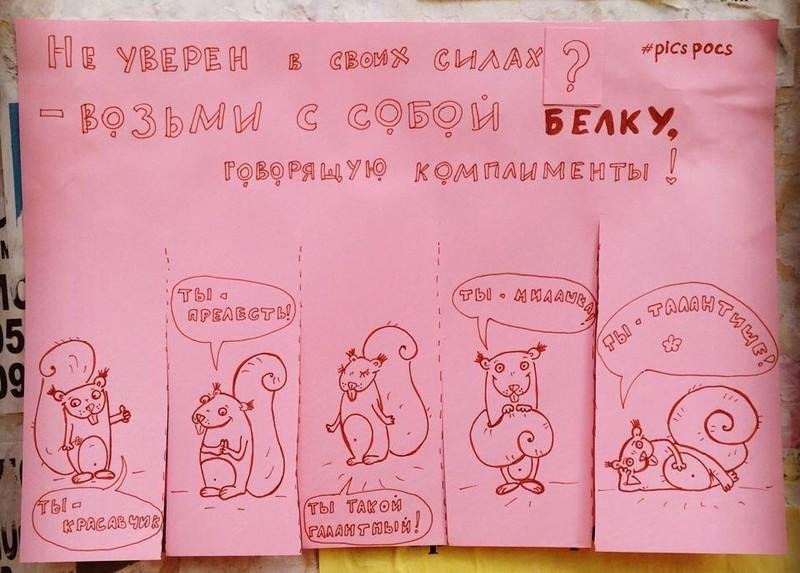 Не уверен в своих силах?
#picspocs
- возьми с собой БЕЛКУ,
говорящую комплименты!
ТЫ -
ПРЕЛЕСТЬ!
ТЫ - МИЛАШКА!
ТЫ - ТАЛАНТИЩЕ!
ТЫ -
КРАСАВЧИК
ТЫ ТАКОЙ
ГАЛАНТНЫЙ!